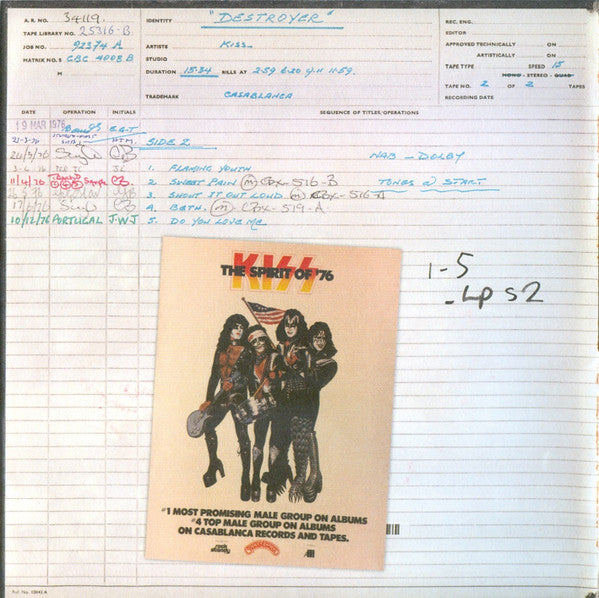 A. R. NO. 34119.
TAPE LIBRARY NO. 25316-B
JOB NO. 92374 A
MATRIX NO.S CBC 4008 B
M
IDENTITY "DESTROYER"
ARTISTE KISS.
STUDIO
DURATION 15:34 RILLS AT 2:59 6:20 9:11 11:59.
TRADEMARK CASABLANCA
REC. ENG.
EDITOR
APPROVED TECHNICALLY ON
ARTISTICALLY ON
TAPE TYPE SPEED 15
MONO - STEREO - QUAD
TAPE NO. 2 OF 2 TAPES
RECORDING DATE
DATE OPERATION INITIALS SEQUENCE OF TITLES/OPERATIONS
19 MAR 1976
SIDE 2
NAB - DOLBY
1. FLAMING YOUTH
2. SWEET PAIN (m) Cox-516-B TONES @ START
3. SHOUT IT OUT LOUD (m) Cox-516-A
4. BETH. (m) Cox-519-A
10/12/76 PORTUGAL J.W.J 5. DO YOU LOVE ME.
1-5
-LP S2
KISS
THE SPIRIT OF '76
#1 MOST PROMISING MALE GROUP ON ALBUMS
#4 TOP MALE GROUP ON ALBUMS
ON CASABLANCA RECORDS AND TAPES.
rock steady